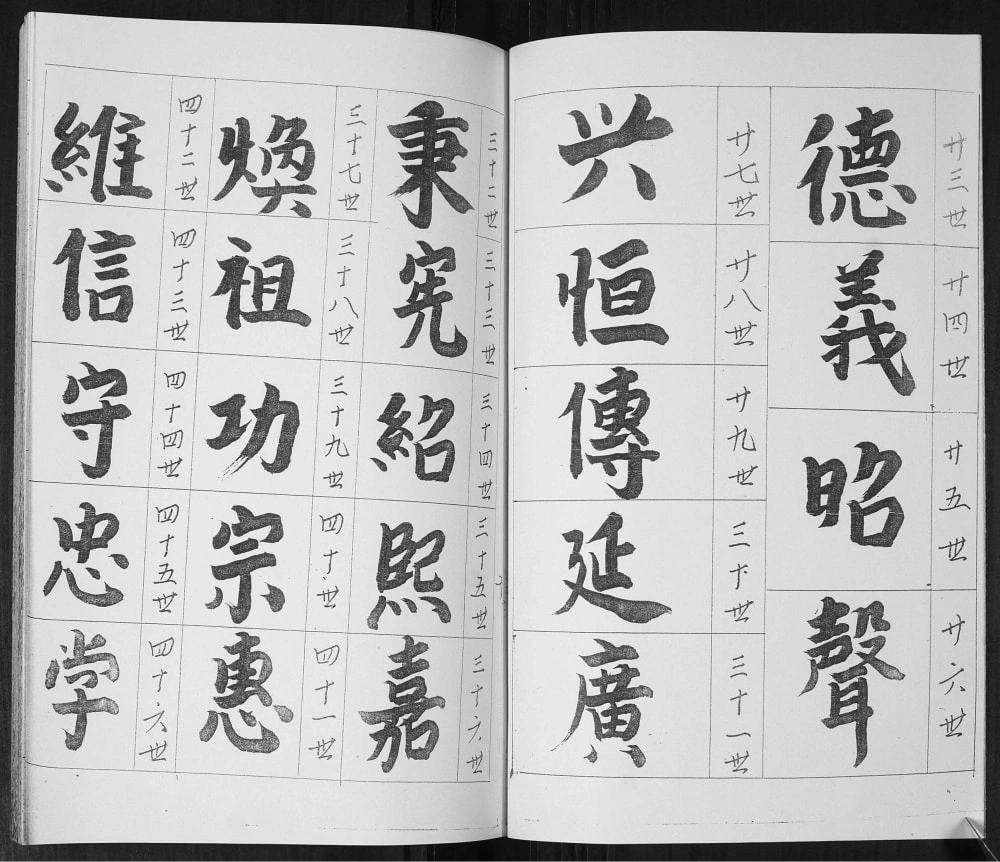 廿三世
德
廿四世
義
廿五世
昭
廿六世
聲
廿七世
兴
廿八世
恒
廿九世
傳
三十世
延
三十一世
廣
三十二世
秉
三十三世
宪
三十四世
紹
三十五世
熙
三十六世
嘉
三十七世
煥
三十八世
祖
三十九世
功
四十世
宗
四十一世
惠
四十二世
維
四十三世
信
四十四世
守
四十五世
忠
四十六世
学